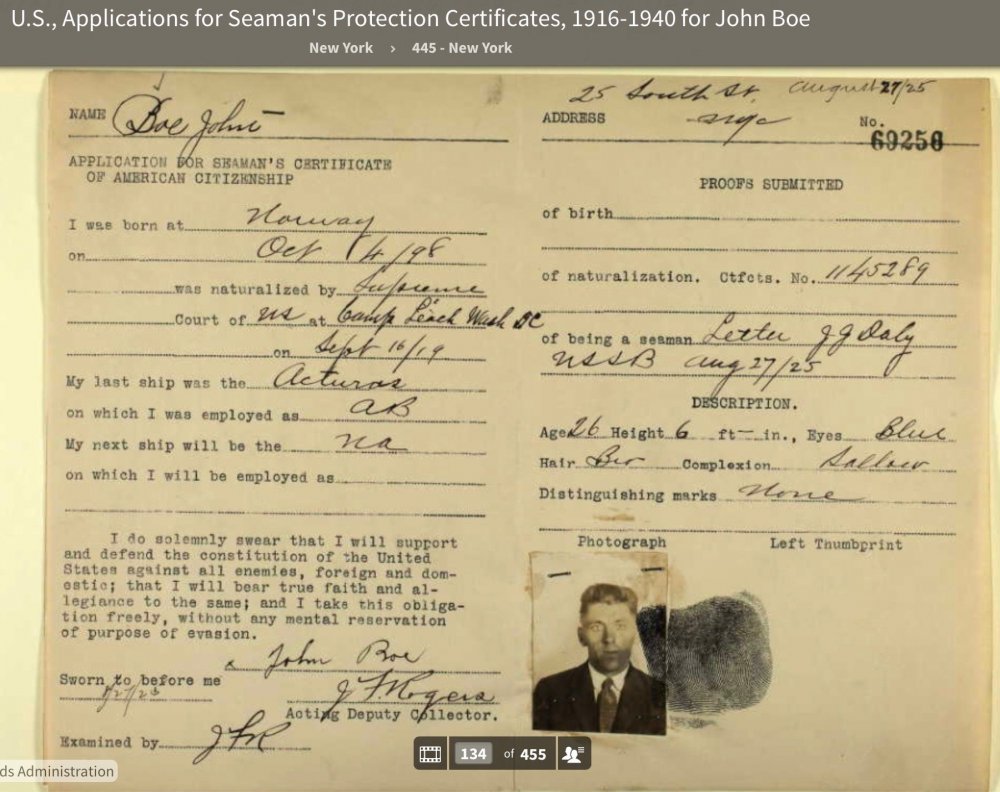 U.S., Applications for Seaman's Protection Certificates, 1916-1940 for John Boe
New York › 445 - New York
NAME Boe John
APPLICATION FOR SEAMAN'S CERTIFICATE
OF AMERICAN CITIZENSHIP
I was born at Norway
on Oct 14/98
was naturalized by Supreme
Court of US at Camp Leach Wash DC
on Sept 16/19
My last ship was the Acturas
on which I was employed as AB
My next ship will be the na
on which I will be employed as
I do solemnly swear that I will support
and defend the constitution of the United
States against all enemies, foreign and dom-
estic; that I will bear true faith and al-
legiance to the same; and I take this obliga-
tion freely, without any mental reservation
of purpose of evasion.
x John Boe
Sworn to before me
J F Rogers
Acting Deputy Collector.
Examined by JFR
25 South St. August 27/25
ADDRESS nyc No.
69256
PROOFS SUBMITTED
of birth
of naturalization. Ctfcts. No. 1145289
of being a seaman Letter J J Daly
USSB Aug 27/25
DESCRIPTION.
Age 26 Height 6 ft — in., Eyes Blue
Hair Bro Complexion Sallow
Distinguishing marks None
Photograph Left Thumbprint
134 of 455
ds Administration